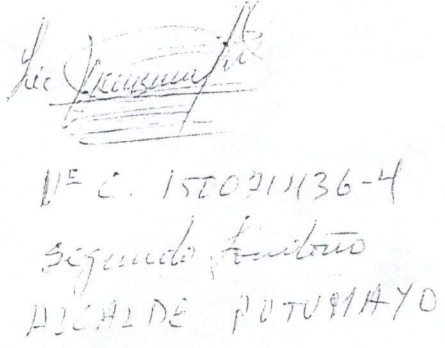 Lic
Nº C. 150071436-4
Segundo Londoño
ALCALDE PUTUMAYO